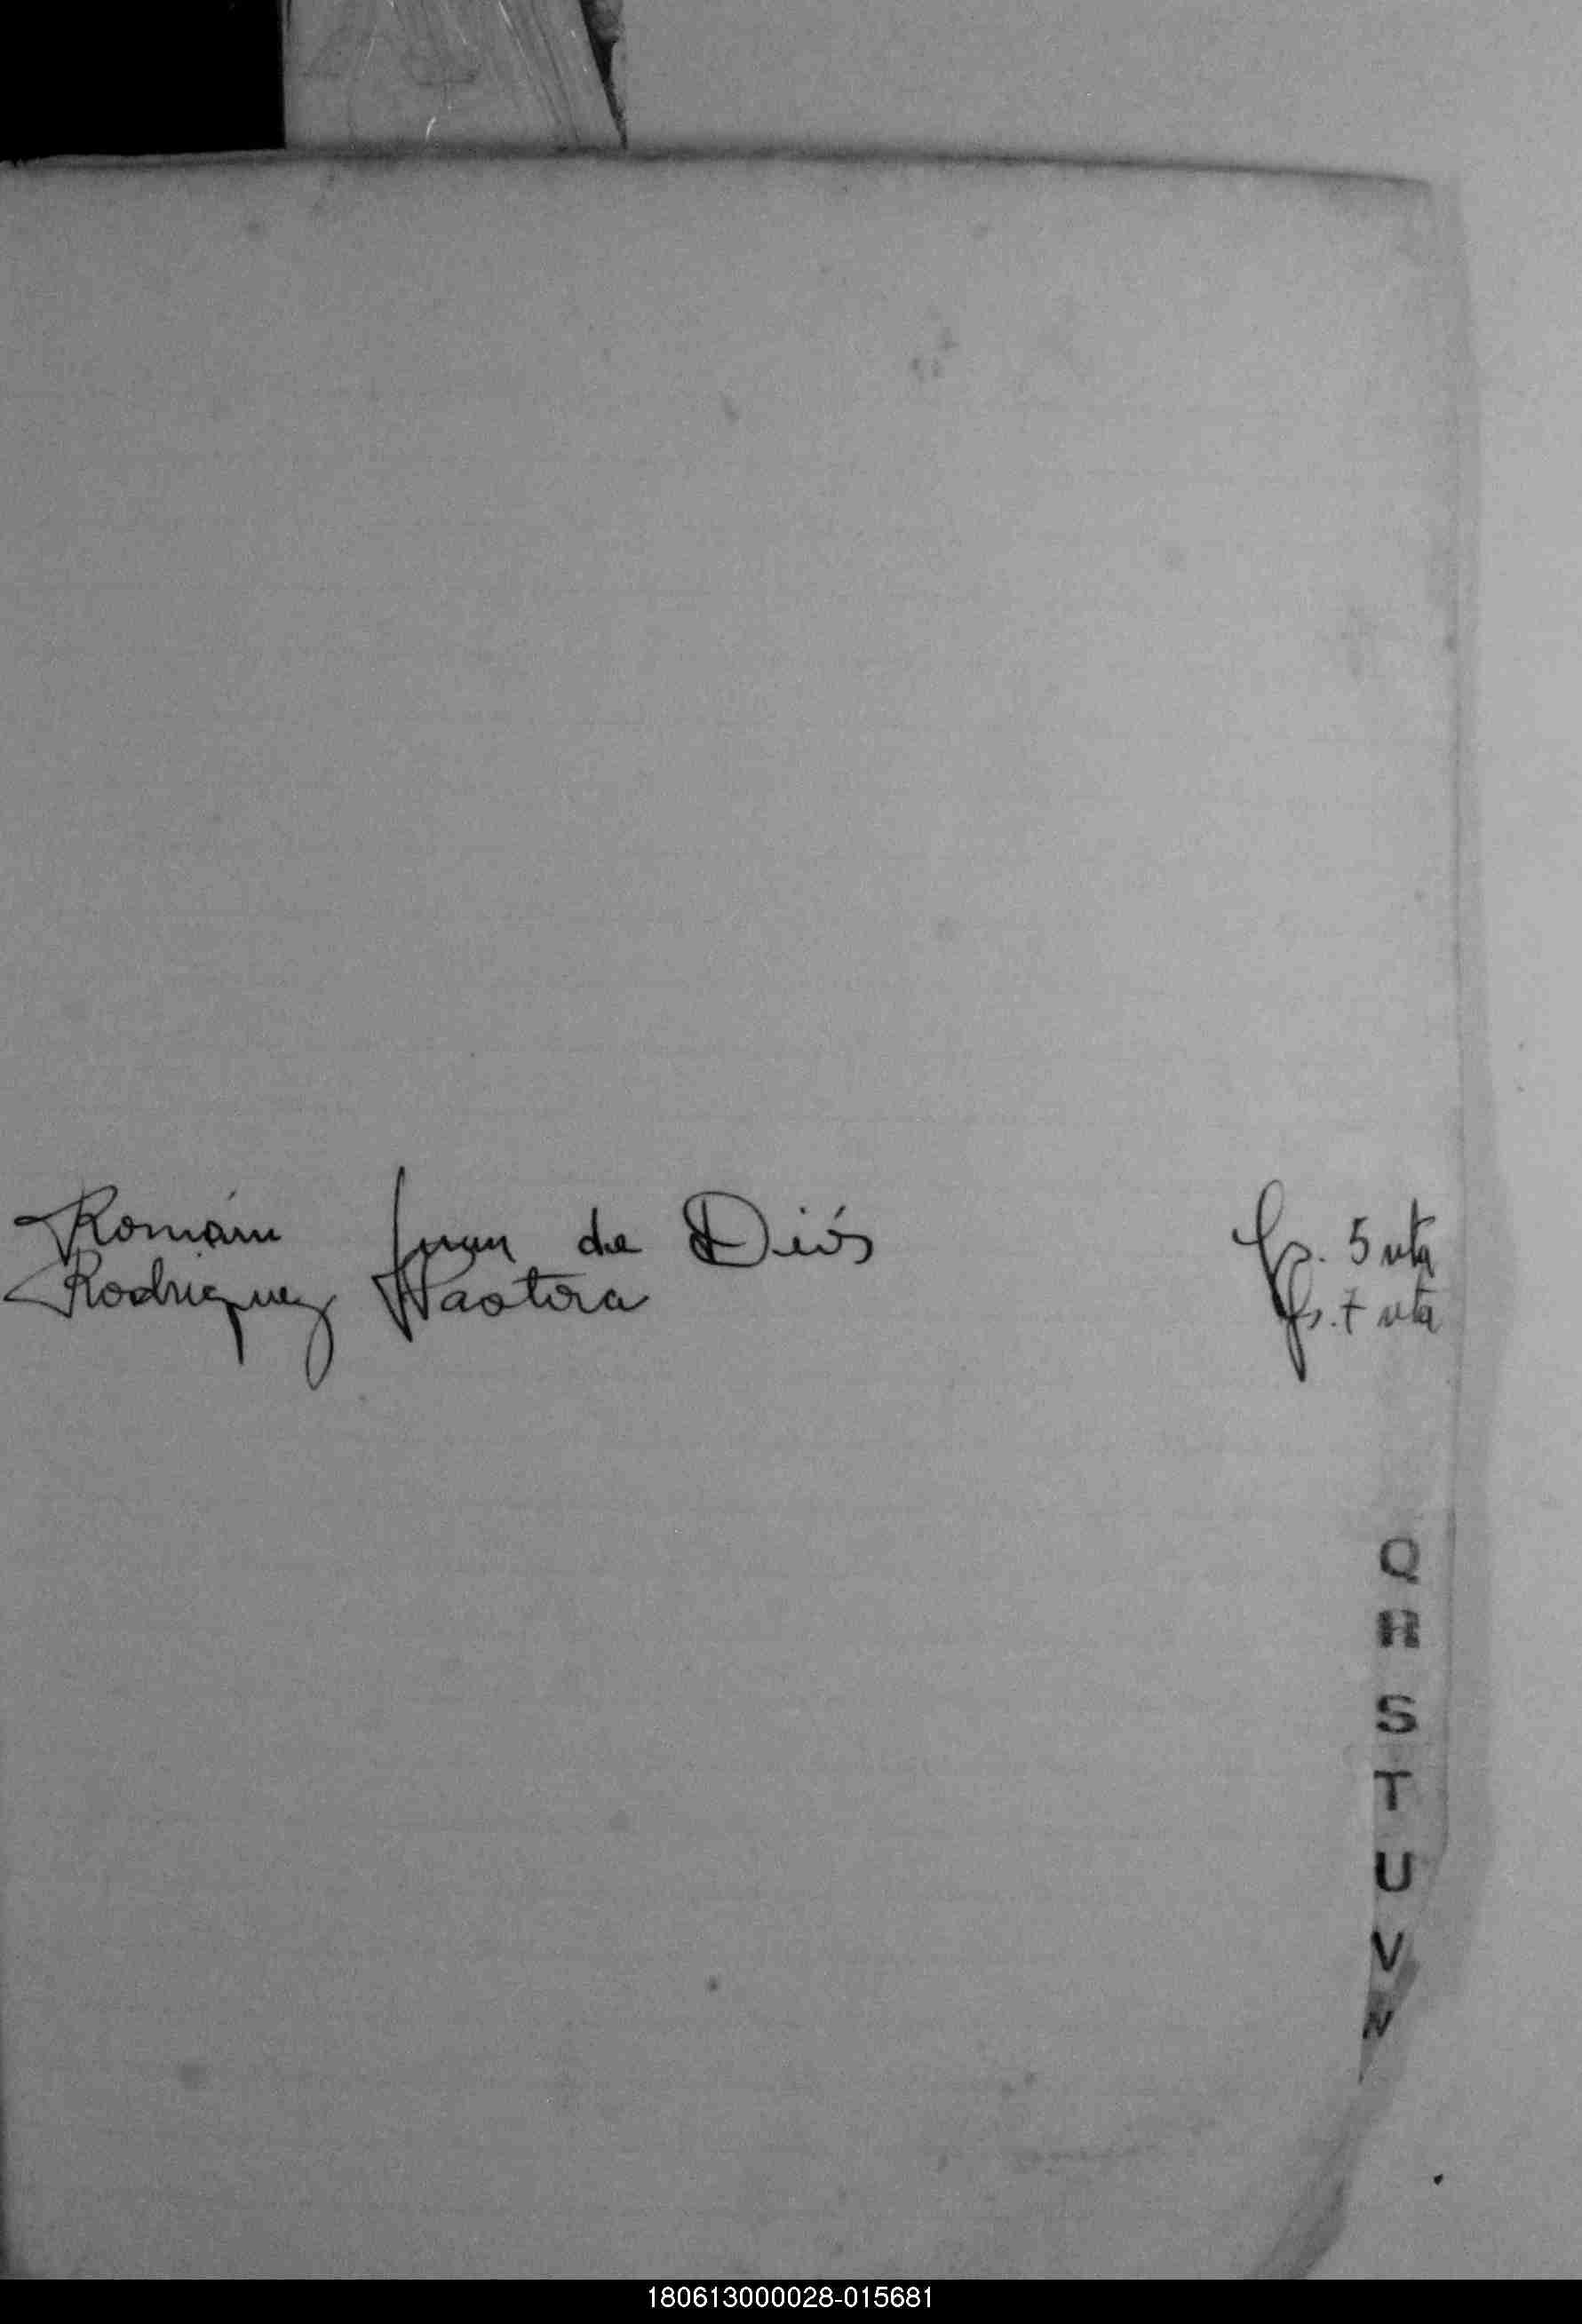 Román Juan de Diós fs. 5 vta
Rodriguez Pastora fs. 7 vta
Q
R
S
T
U
V
180613000028-015681